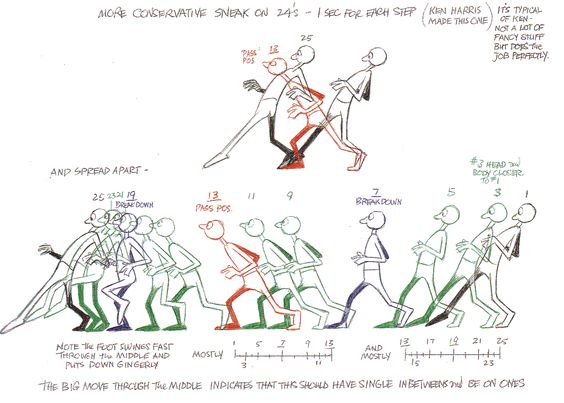 MORE CONSERVATIVE SNEAK ON 24's - 1 SEC FOR EACH STEP
(KEN HARRIS
MADE THIS ONE)
IT'S TYPICAL
OF KEN -
NOT A LOT OF
FANCY STUFF
BUT DOES THE
JOB PERFECTLY.
25
PASS 13
POS
1
AND SPREAD APART -
#3 HEAD and
BODY CLOSER
TO #1
25 23 21 19
BREAKDOWN
13
PASS POS.
11
9
7
BREAKDOWN
5
3
1
NOTE THE FOOT SWINGS FAST
THROUGH the MIDDLE AND
PUTS DOWN GINGERLY
MOSTLY
1 5 7 9 13
3 11
AND
MOSTLY
13 17 19 21 25
15 23
THE BIG MOVE THROUGH THE MIDDLE INDICATES THAT THIS SHOULD HAVE SINGLE INBETWEENS and BE ON ONES